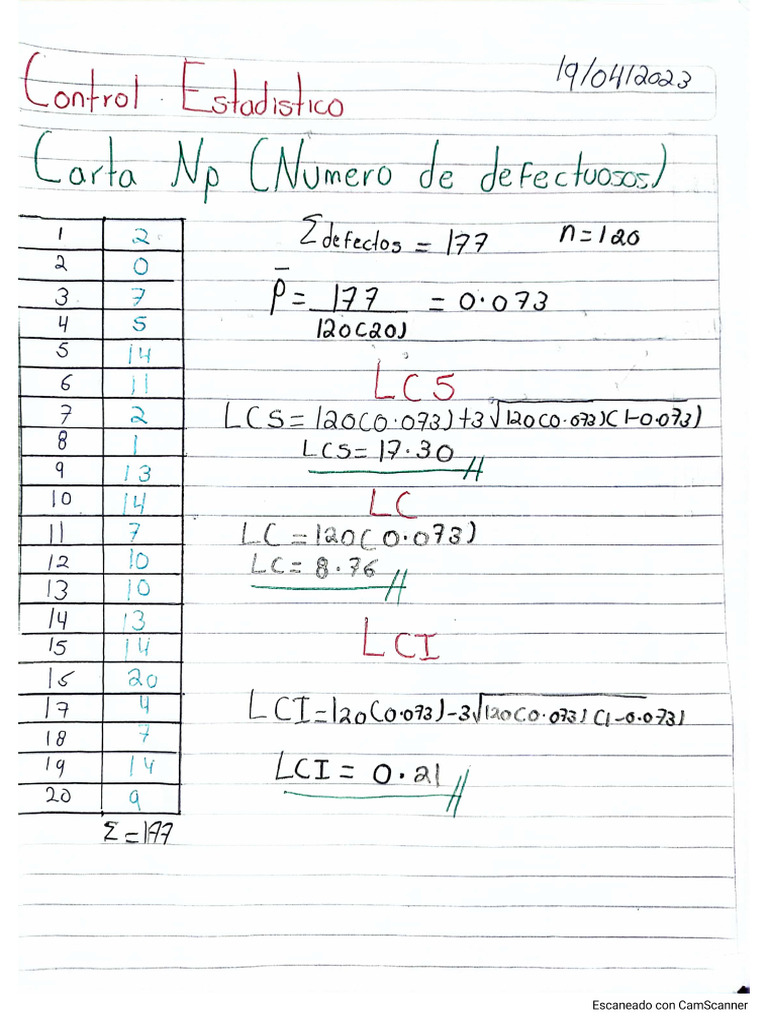 19/04/2023
Control Estadistico
Carta Np (Numero de defectuosos)
1 2
2 0
3 7
4 5
5 14
6 11
7 2
8 1
9 13
10 14
11 7
12 10
13 10
14 13
15 14
16 20
17 4
18 7
19 14
20 9
Σ = 177
Σ defectos = 177 n=120
p̄ = 177 / 120(20) = 0.073
LCS
LCS = 120(0.073)+3√120(0.073)(1-0.073)
LCS = 17.30
LC
LC = 120(0.073)
LC = 8.76
LCI
LCI = 120(0.073)-3√120(0.073)(1-0.073)
LCI = 0.21
Escaneado con CamScanner